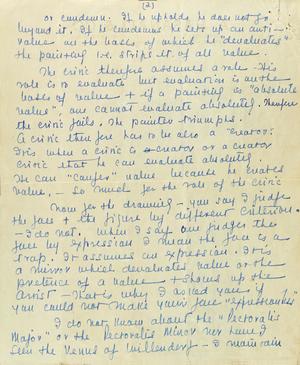 (2)
or condemn. If he upholds, he does not go
beyond it. If he condemns he sets up an anti-
value on the basis of which he "devaluates"
the painting i.e. strips it of all value.
The critic therefore assumes a role - His
role is to evaluate but evaluation is on the
basis of value + if a painting is "absolute
value", one cannot evaluate absolutely. Therefore
the critic fails. The painter triumphs.
A critic then for has to be also a "creator".
It is when a critic is creator or a creator
critic that he can evaluate absolutely.
He can "confer" value because he creates
value. - So much for the role of the critic
Now for the drawing - you say I judge
the face + the figure by different criterion.
- I do not. When I say one judges the
face by expression I mean the face is a
trap. It assumes an expression. It is
a mirror which devaluates value or the
pretence of a value + shows up the
artist - That is why I asked you if
you could not make your face "expressionless"?
I do not know about the "Pectoralis
Major" or the Pectoralis Minor nor have I
seen the Venus of Willendorf - I maintain